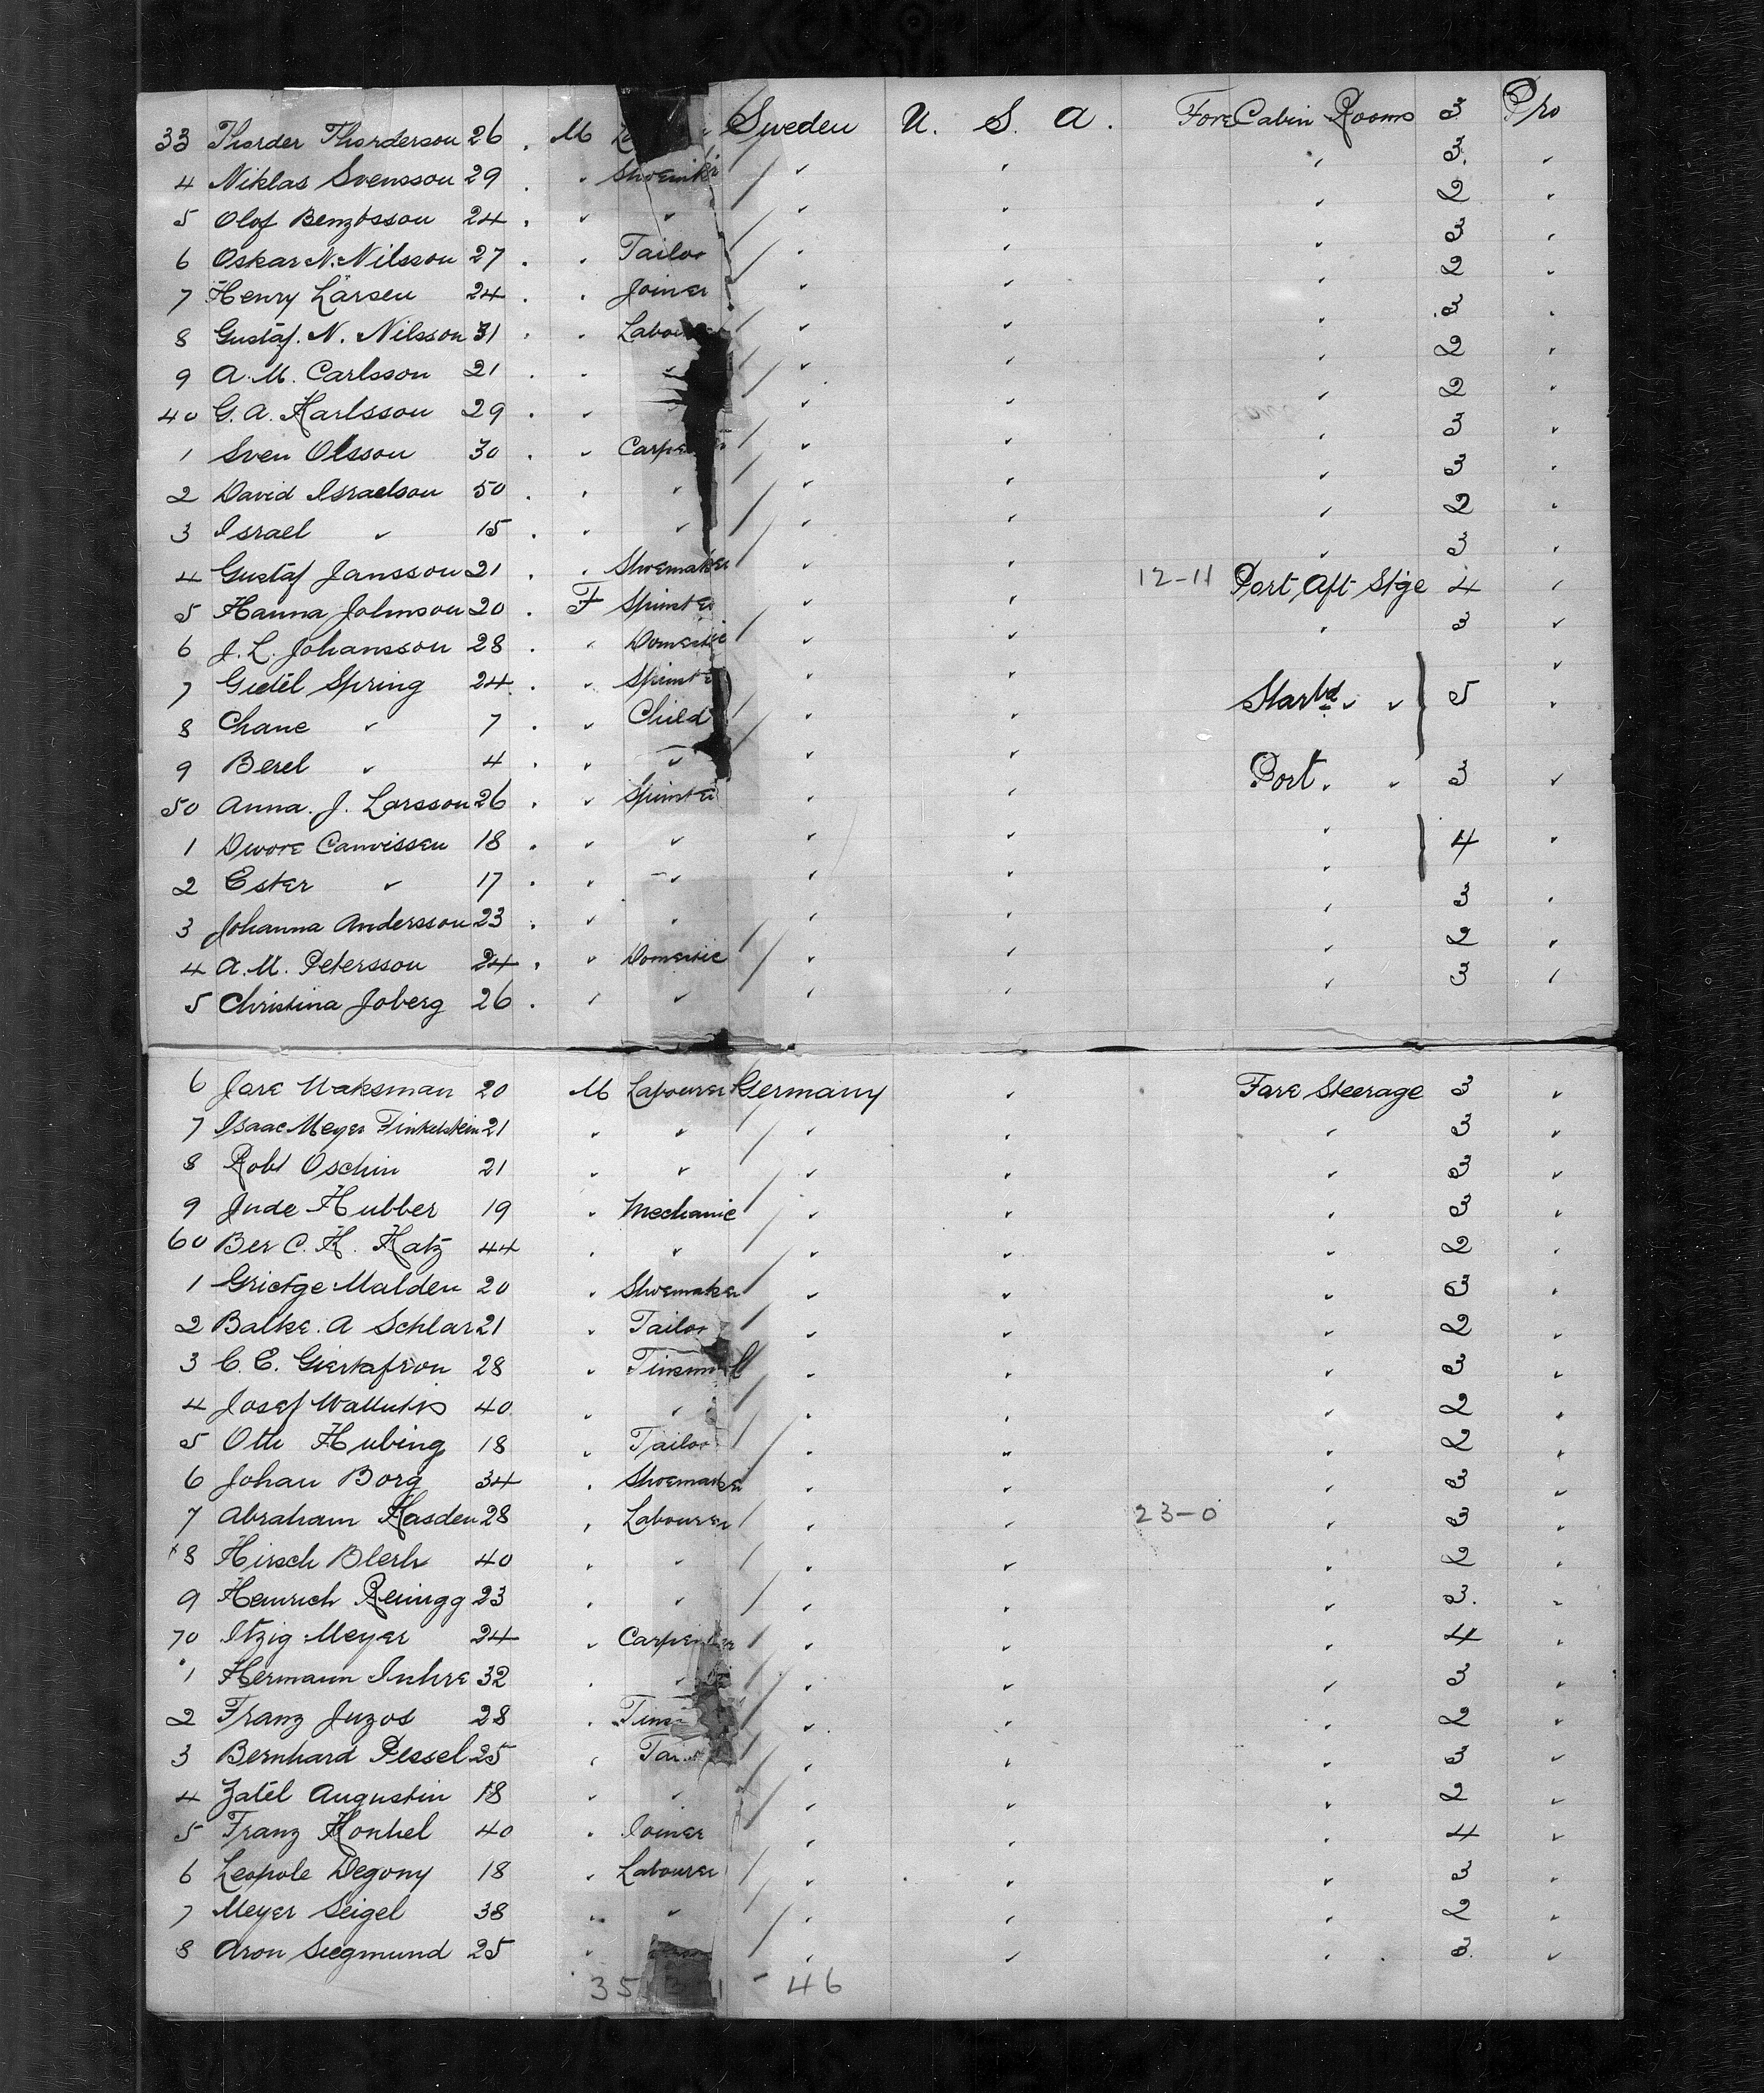 33 Thorder Thorderson 26 . M Sweden U. S. A. Fore Cabin Rooms 3 Pro
4 Niklas Svensson 29 . " Shoemkr / " " " 3 "
5 Olof Bengtsson 24 . " " / " " " 2 "
6 Oskar N. Nilsson 27 . " Tailor / " " " 3 "
7 Henry Larsen 24 . " Joiner / " " " 2 "
8 Gustaf. N. Nilsson 31 . " Labourer / " " " 3 "
9 A. M. Carlsson 21 . " " / " " " 2 "
40 G. A. Karlsson 29 . " " / " " " 2 "
1 Sven Olsson 30 . " Carpenter / " " " 3 "
2 David Israelson 50 . " " / " " " 3 "
3 Israel " 15 . " " / " " " 2 "
4 Gustaf Jansson 21 . " Shoemaker / " " " 3 "
5 Hanna Johnson 20 . F Spinster / " " 12-11 Port Aft Stge 4 "
6 J. L. Johansson 28 . " Domestic / " " " 3 "
7 Gudel Spring 24 . " Spinster / " " "
8 Chane " 7 . " Child / " " Starbd " " } 5 "
9 Berel " 4 . " " " "
50 Anna. J. Larsson 26 . " Spinster " " Port. " 3 "
1 Dwore Canvissen 18 . " " " " " 4 "
2 Ester " 17 . " " " " "
3 Johanna Andersson 23 . " " / " " " 3 "
4 A. M. Petersson 24 . " Domestic / " " " 2 "
5 Christina Joberg 26 . " " " " " 3 "
6 Jore Waksman 20 M Labourer Germany " Fore Steerage 3 "
7 Isaac Meyer Finkelstein 21 " " / " " " 3 "
8 Robt Oschin 21 " " / " " " 3 "
9 Jude Hubber 19 " Mechanic / " " " 3 "
60 Ber C. K. Katz 44 " " / " " " 2 "
1 Grietge Malden 20 " Shoemaker / " " " 3 "
2 Balke. A Schlar 21 " Tailor / " " " 2 "
3 C. E. 28 " Tinsmith " " " 3 "
4 Josef 40 " " / " " " 2 "
5 Otto Hubing 18 " Tailor / " " " 2 "
6 Johan Borg 34 " Shoemaker / " " " 3 "
7 Abraham Kasden 28 " Labourer / " " 23-0 " 3 "
8 Hirsch 40 " " / " " " 2 "
9 Heinrich Reinigg 23 " " / " " " 3 "
70 Itzig Meyer 24 " Carpenter / " " " 4 "
1 Hermann 32 " " / " " " 3 "
2 Franz Juzos 28 " / " " " 2 "
3 Bernhard Pessel 25 " / " " " 3 "
4 Zatel Augustin 18 " " / " " " 2 "
5 Franz Honhel 40 " Joiner / " " " 4 "
6 Leopole Degony 18 " Labourer / " " " 3 "
7 Meyer Seigel 38 " " / " " " 2 "
8 Aron Siegmund 25 " / " " " 3 "
35 1 - 46